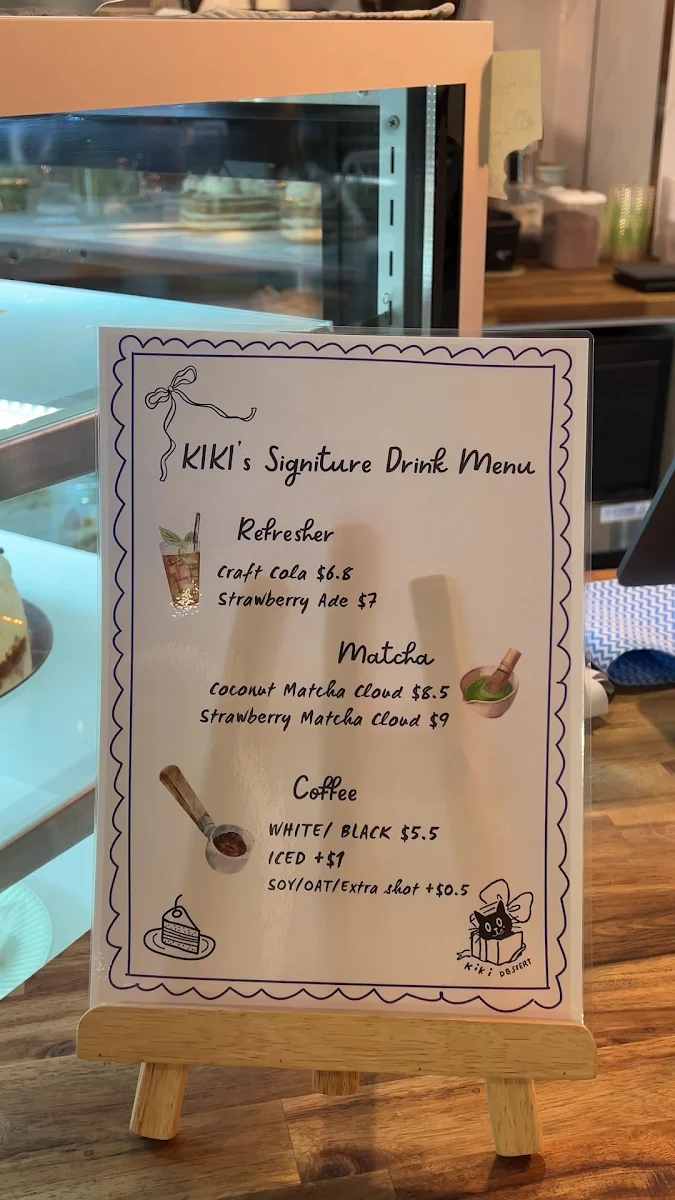 KIKI's Signiture Drink Menu
Refresher
Craft Cola $6.8
Strawberry Ade $7
Matcha
Coconut Matcha Cloud $8.5
Strawberry Matcha Cloud $9
Coffee
WHITE/ BLACK $5.5
ICED +$1
SOY/OAT/Extra shot +$0.5
KiKi DESSERT